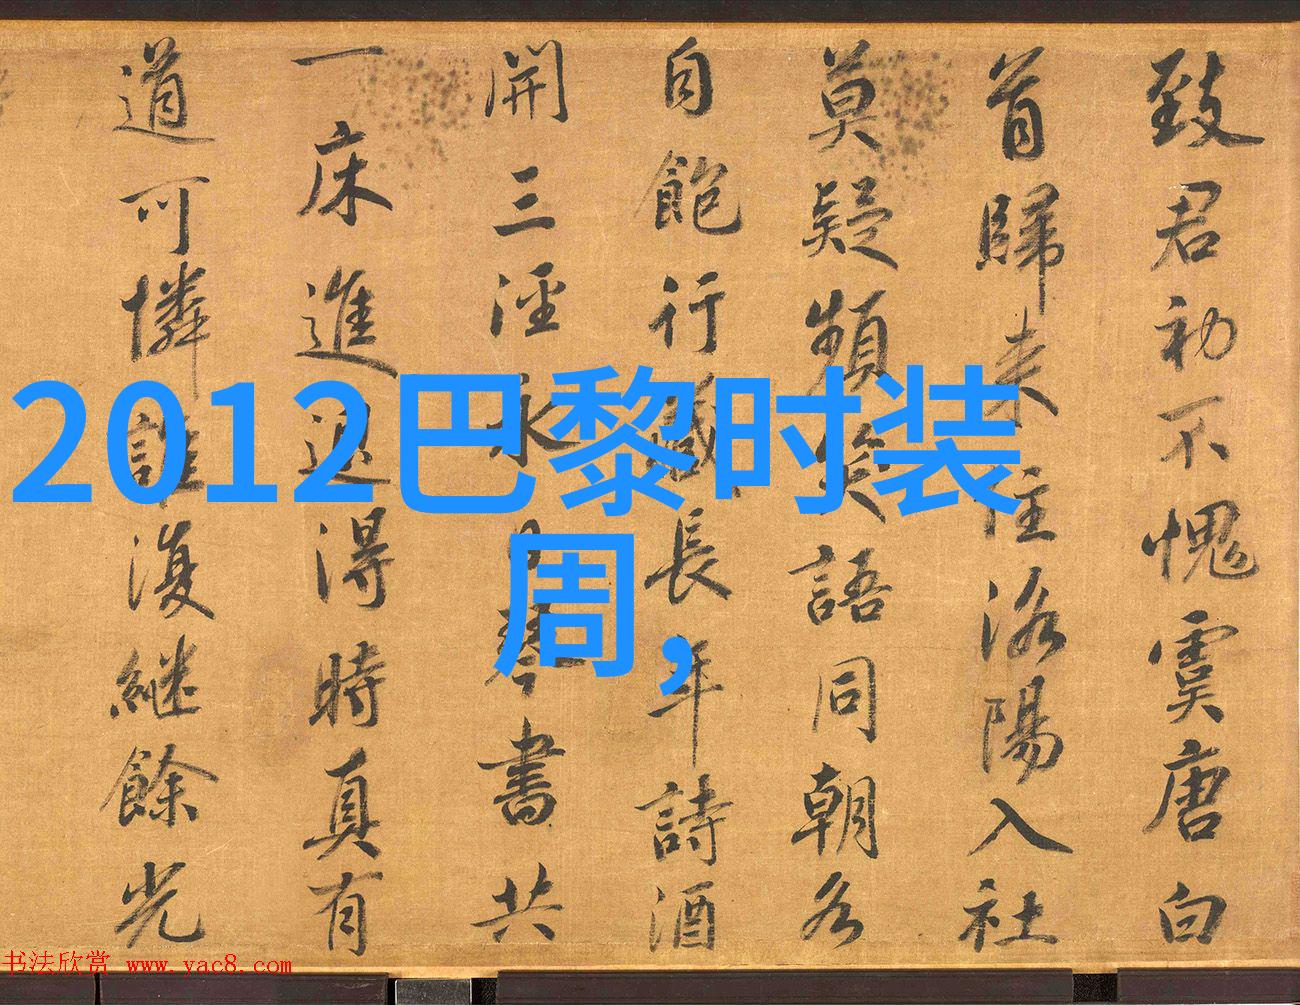 致君初不愧虞唐白
首歸来住洛陽入社
莫疑頻笑語同朝各
自飽行藏長年詩酒
開三涇永日琴書共
一床進退得時真有
道可憐誰復継餘光
2012巴黎时装
周,
书法欣赏 www.yac8.com